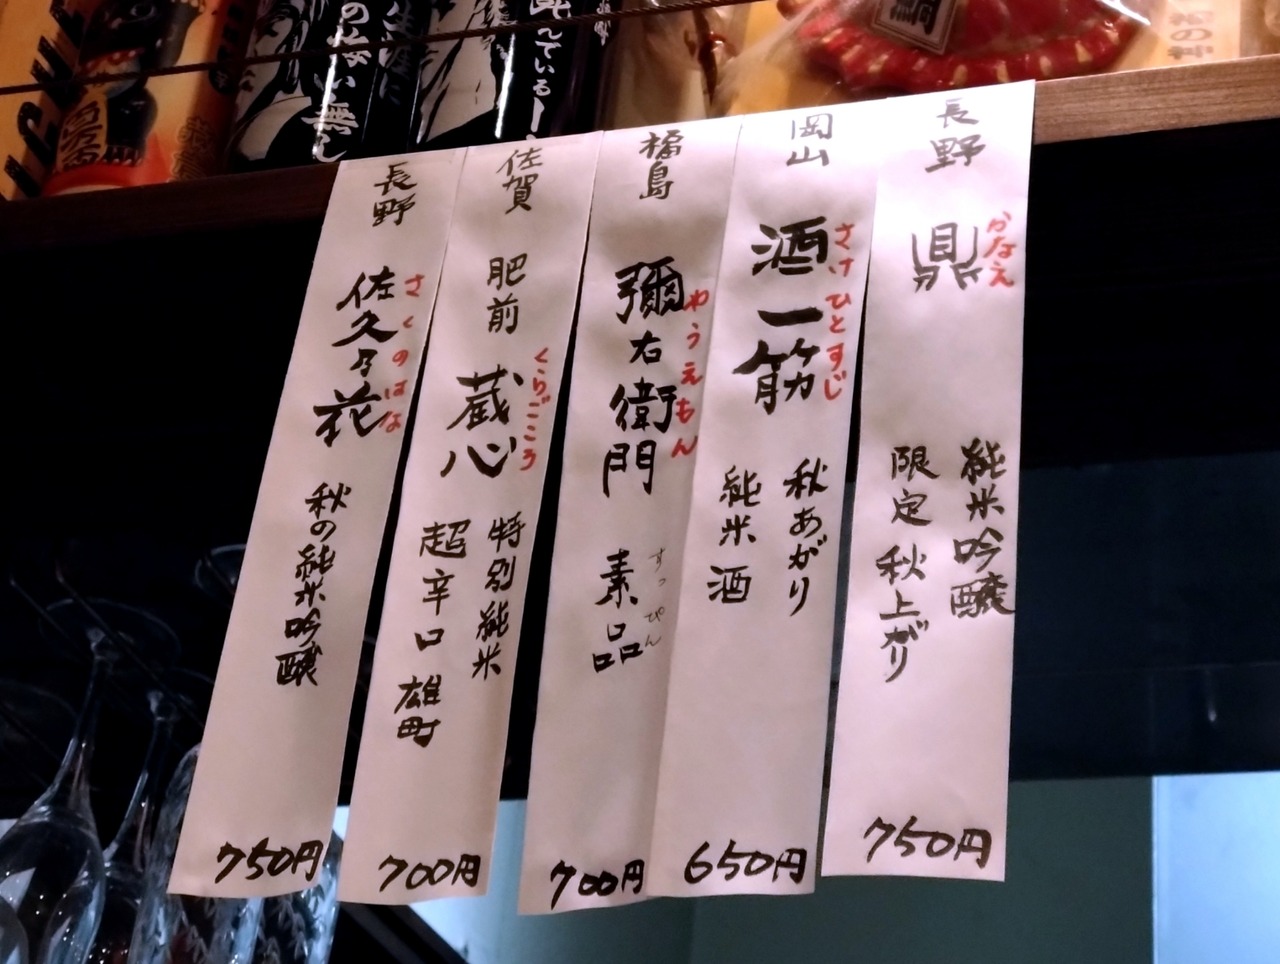 長野
鼎
かなえ
純米吟醸
限定 秋上がり
750円
岡山
酒一筋
さけひとすじ
秋あがり
純米酒
650円
福島
彌右衛門
やうえもん
素品
すっぴん
700円
佐賀
肥前
蔵心
くらごころ
特別純米
超辛口 雄町
700円
長野
佐久の花
さくのはな
秋の純米吟醸
750円